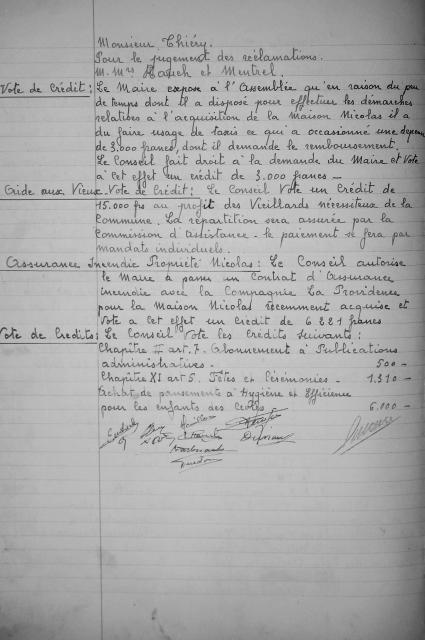 Monsieur Thiéry.
Pour le jugement des réclamations.
M. Mrs Hauch et Mentrel.
Vote de Crédit : Le Maire expose à l'Assemblée qu'en raison du peu
de temps dont il a disposé pour effectuer les démarches
relatives à l'acquisition de la Maison Nicolas il a
du faire usage de taxis ce qui a occasionné une dépense
de 3.000 francs, dont il demande le remboursement.
Le Conseil fait droit à la demande du Maire et Vote
à cet effet un crédit de 3.000 francs —
Aide aux Vieux. Vote de Crédit : Le Conseil Vote un Crédit de
15.000 frs au profit des Vieillards nécessiteux de la
Commune. La répartition sera assurée par la
Commission d'Assistance. le paiement se fera par
mandats individuels.
Assurance Incendie Propriété Nicolas : Le Conseil autorise
le Maire à passer un Contrat d'Assurance
incendie avec la Compagnie La Providence
pour la Maison Nicolas récemment acquise et
Vote à cet effet un Crédit de 6221 francs
Vote de Crédits : Le Conseil Vote les Crédits Suivants :
Chapitre II art. 7. Abonnement à Publications
administratives. 500 —
Chapitre XI art 5. Fêtes et Cérémonies. 1.310 —
Achat de pansements à Hygiène et Efficience
pour les enfants des Ecoles 6.000 —